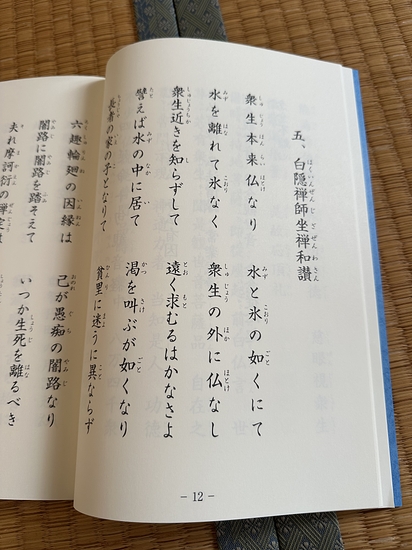 五、白隠禅師坐禅和讃
衆生本来仏なり　水と氷の如くにて
水を離れて氷なく　衆生の外に仏なし
衆生近きを知らずして　遠く求むるはかなさよ
譬えば水の中に居て　渇を叫ぶが如くなり
長者の家の子となりて　貧里に迷うに異ならず
六趣輪廻の因縁は　己が愚痴の闇路なり
闇路に闇路を踏そえて　いつか生死を離るべき
夫れ摩訶衍の禅定は
- 12 -